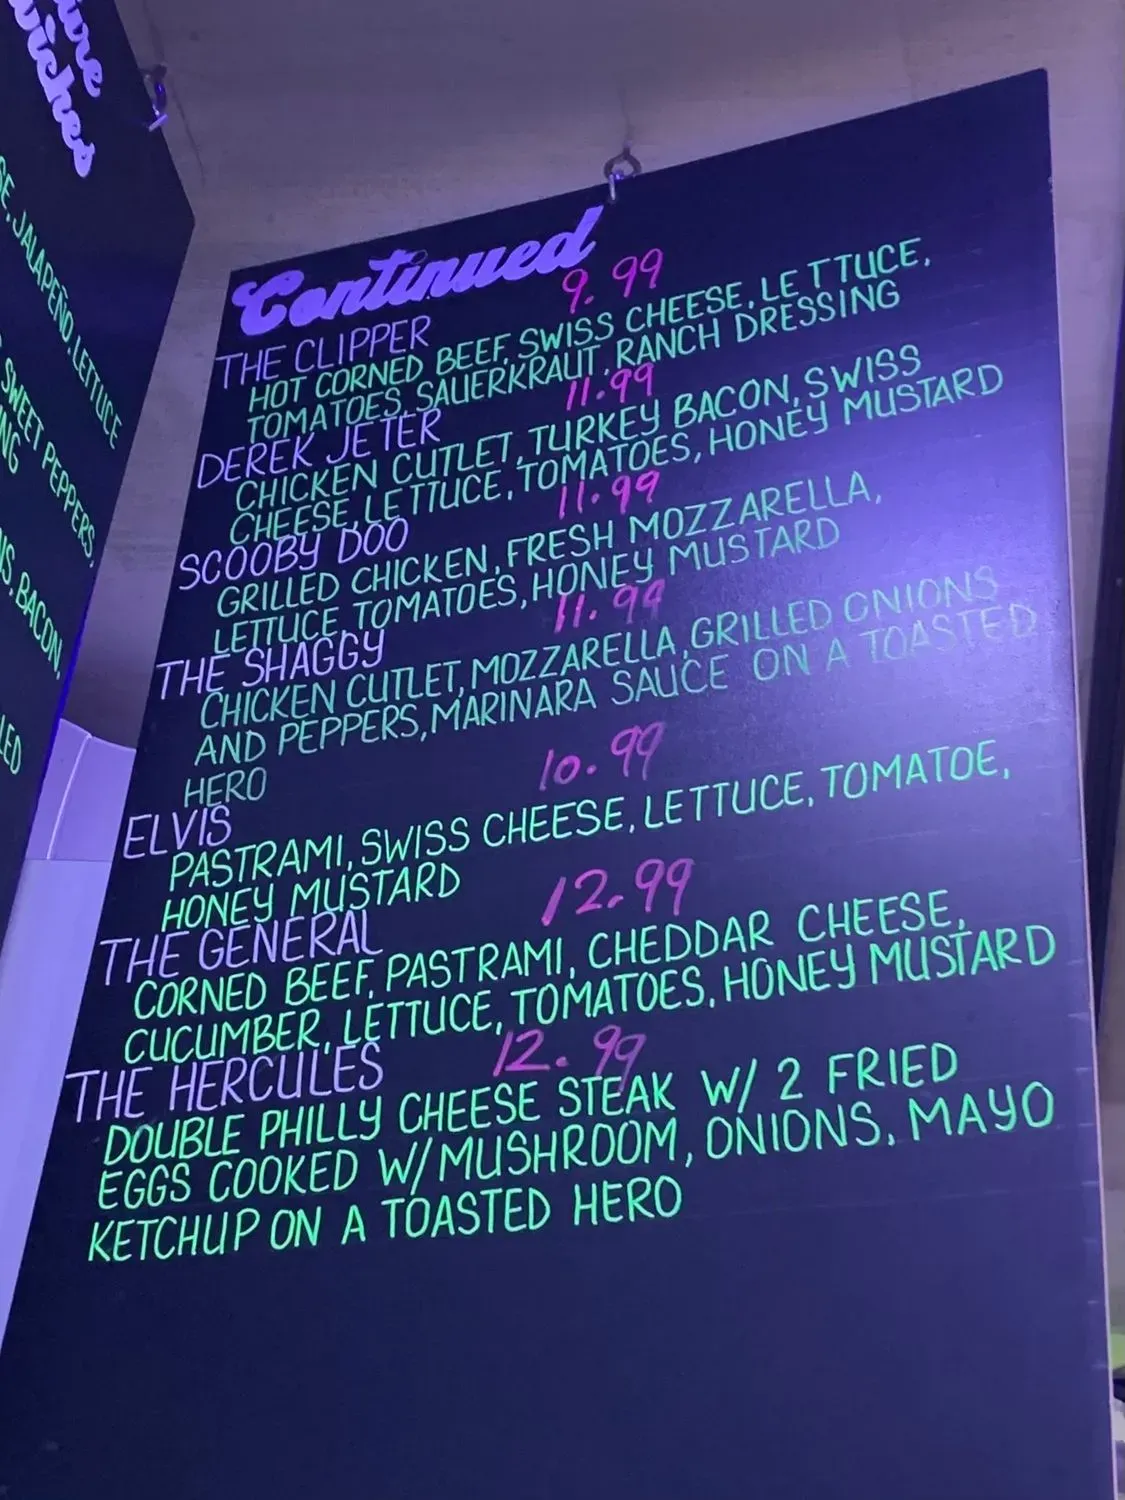 ure
wiches
SE, JALAPEÑO, LETTUCE
SWEET PEPPERS,
NG
NS, BACON,
LED
Continued
9.99
THE CLIPPER
HOT CORNED BEEF, SWISS CHEESE, LETTUCE,
TOMATOES SAUERKRAUT, RANCH DRESSING
11.99
DEREK JETER
CHICKEN CUTLET, TURKEY BACON, SWISS
CHEESE, LETTUCE, TOMATOES, HONEY MUSTARD
11.99
SCOOBY DOO
GRILLED CHICKEN, FRESH MOZZARELLA,
LETTUCE TOMATOES, HONEY MUSTARD
11.99
THE SHAGGY
CHICKEN CUTLET, MOZZARELLA, GRILLED ONIONS
AND PEPPERS, MARINARA SAUCE ON A TOASTED
HERO
10.99
ELVIS
PASTRAMI, SWISS CHEESE, LETTUCE, TOMATOE,
HONEY MUSTARD
12.99
THE GENERAL
CORNED BEEF, PASTRAMI, CHEDDAR CHEESE,
CUCUMBER, LETTUCE, TOMATOES, HONEY MUSTARD
12.99
THE HERCULES
DOUBLE PHILLY CHEESE STEAK W/ 2 FRIED
EGGS COOKED W/ MUSHROOM, ONIONS, MAYO
KETCHUP ON A TOASTED HERO